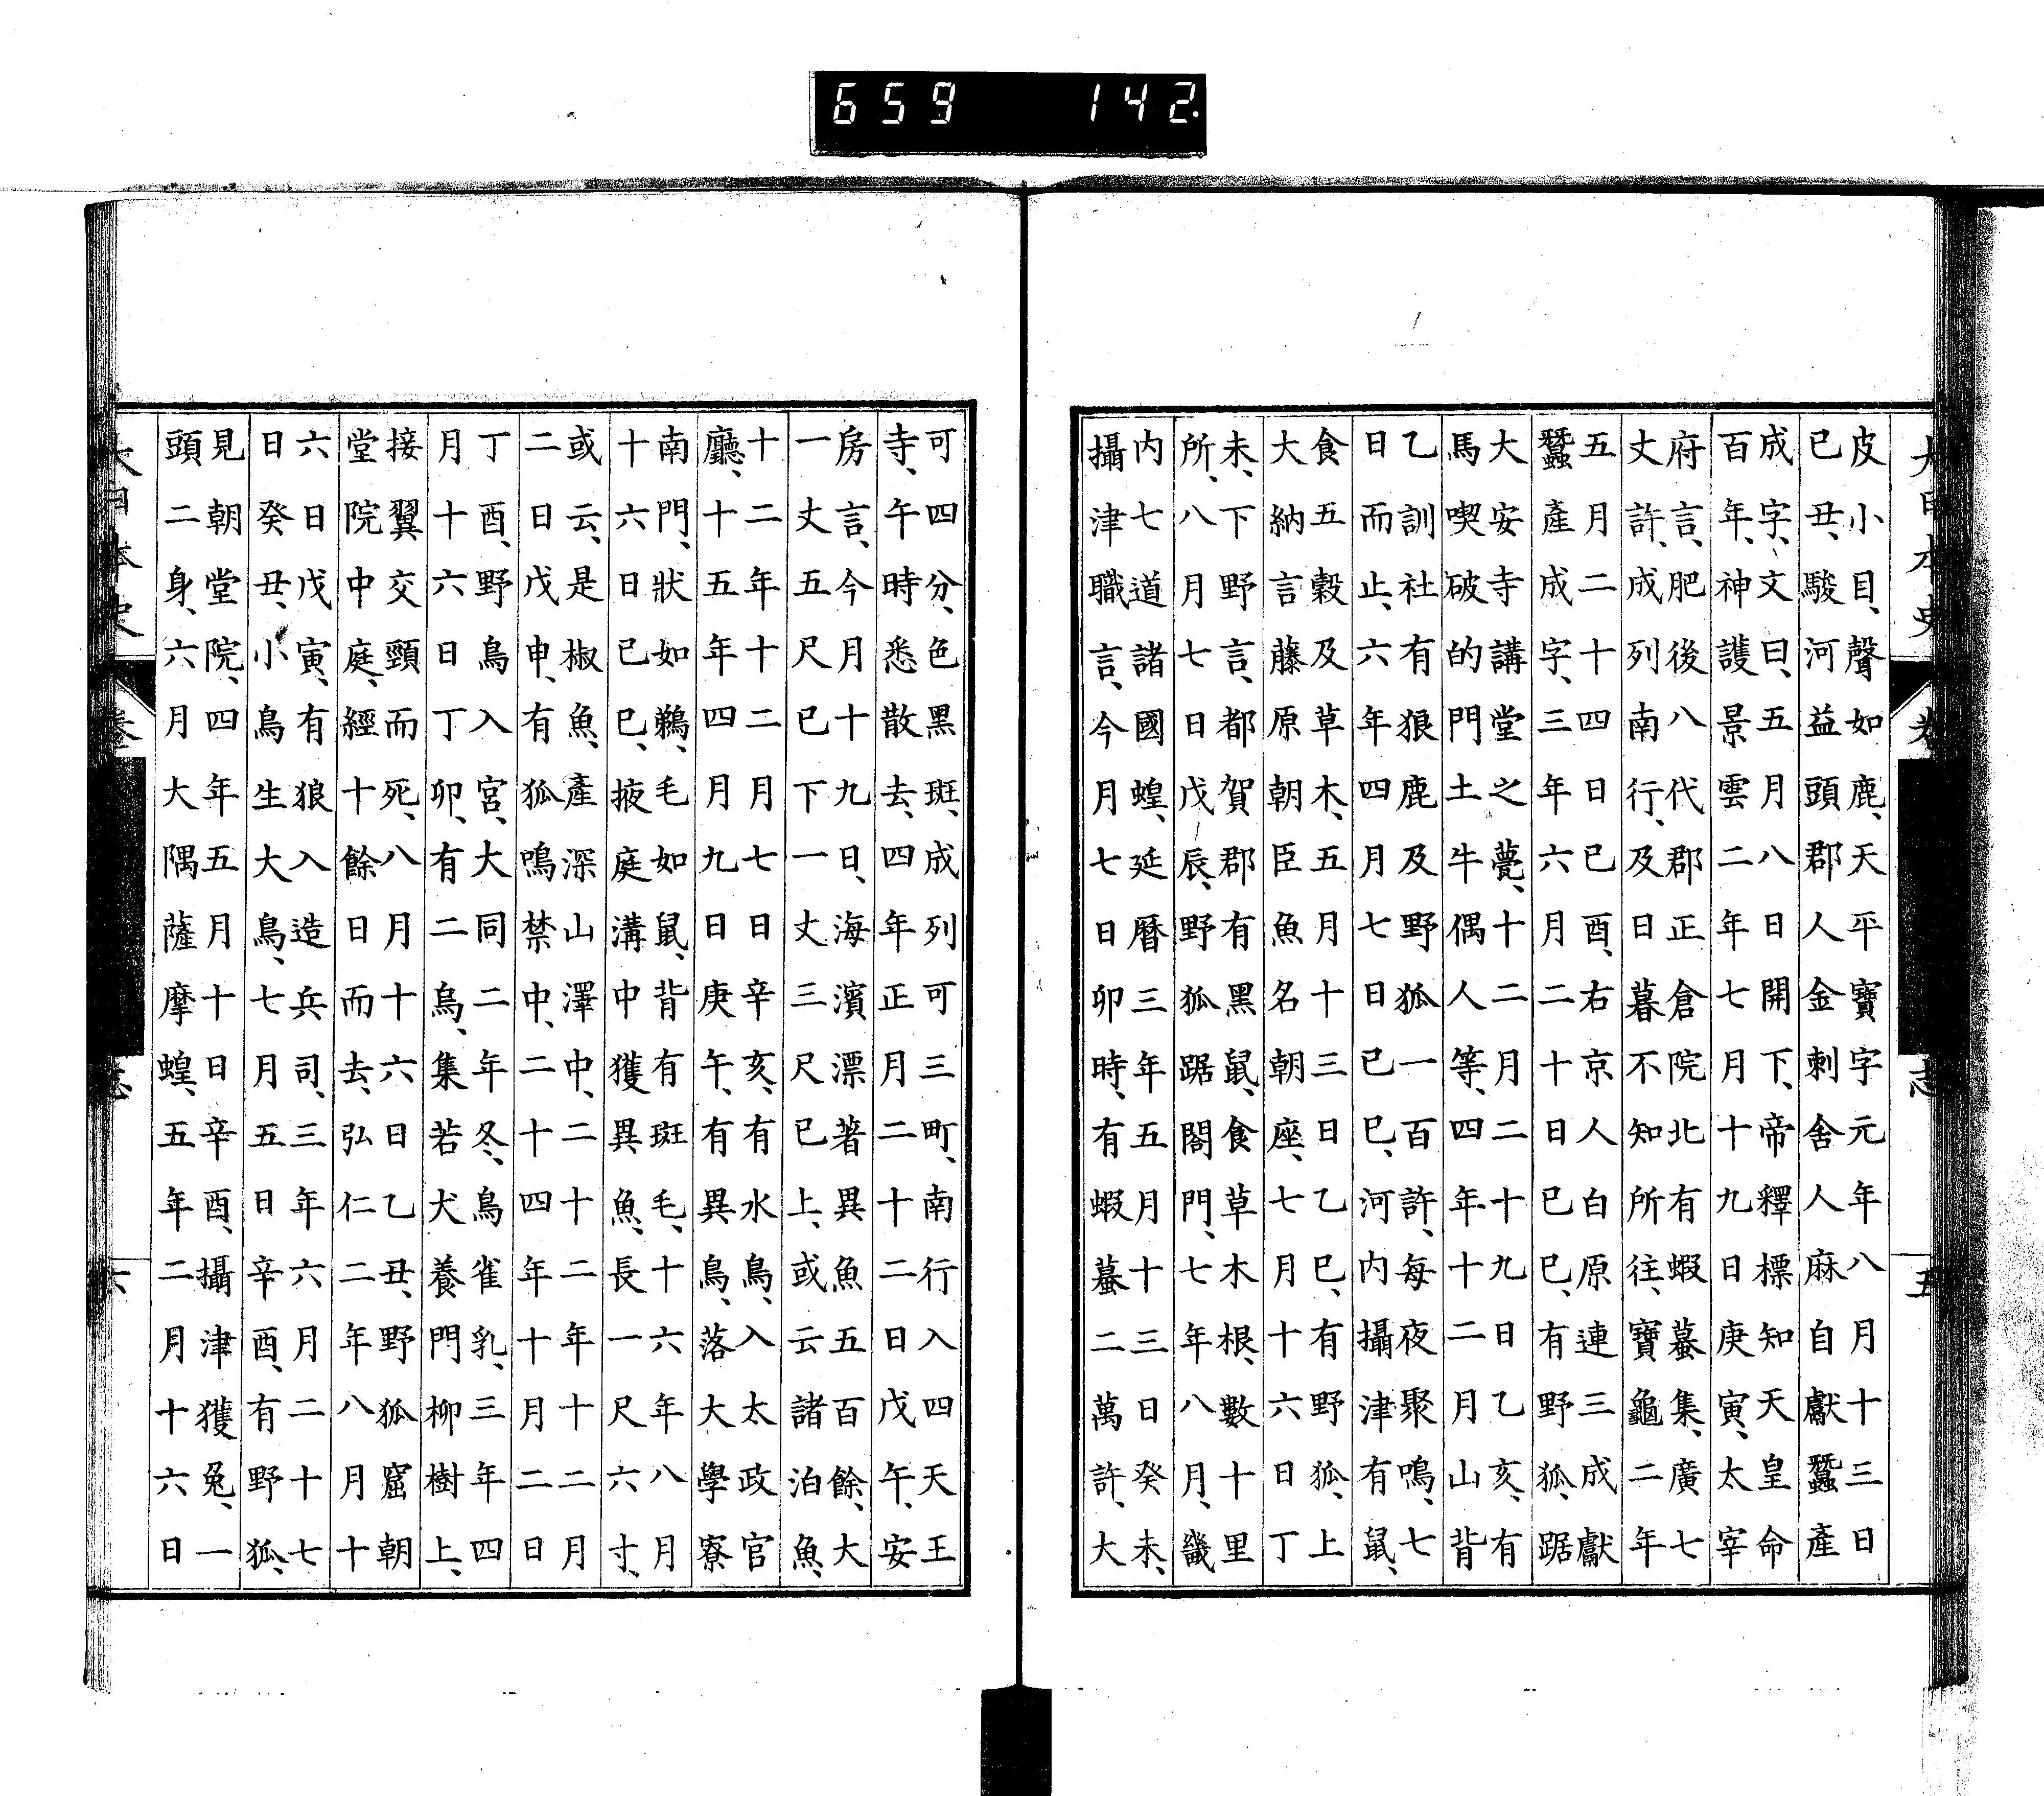 659 142.
大日本史 志 五
皮小目、聲如鹿、天平寶字元年八月十三日
已丑、駿河益頭郡人金刺舍人麻自獻蠶產
成字、文曰、五月八日開下、帝釋標知天皇命
百年、神護景雲二年七月十九日庚寅、太宰
府言、肥後八代郡正倉院北有蝦蟇集、廣七
丈許、成列南行、及日暮不知所往、寶龜二年
五月二十四日已酉、右京人白原連三成獻
蠶產成字、三年六月二十日已巳、有野狐、踞
大安寺講堂之甍、十二月二十九日乙亥、有
馬喫破的門土牛偶人等、四年十二月山背
乙訓社有狼鹿及野狐一百許、每夜聚鳴、七
日而止、六年四月七日已巳、河內攝津有鼠、
食五穀及草木、五月十三日乙巳、有野狐、上
大納言藤原朝臣魚名朝座、七月十六日丁
未、下野言、都賀郡有黑鼠、食草木根、數十里
所、八月七日戊辰、野狐踞閤門、七年八月、畿
内七道諸國蝗、延曆三年五月十三日癸未、
攝津職言、今月七日卯時、有蝦蟇二萬許、大
可四分、色黑斑、成列可三町、南行入四天王
寺、午時悉散去、四年正月二十二日戊午、安
房言、今月十九日、海濱漂著異魚五百餘、大
一丈五尺已下一丈三尺已上、或云諸泊魚、
十二年十二月七日辛亥、有水鳥、入太政官
廳、十五年四月九日庚午、有異鳥、落大學寮
南門、狀如鵜、毛如鼠、背有斑毛、十六年八月
十六日已巳、掖庭溝中獲異魚、長一尺六寸、
或云、是椒魚、產深山澤中、二十二年十二月
二日戊申、有狐鳴禁中、二十四年十月二日
丁酉、野鳥入宮、大同二年冬、鳥雀乳、三年四
月十六日丁卯、有二烏、集若犬養門柳樹上、
接翼交頸而死、八月十六日乙丑、野狐窟朝
堂院中庭、經十餘日而去、弘仁二年八月十
六日戊寅、有狼入造兵司、三年六月二十七
日癸丑、小鳥生大鳥、七月五日辛酉、有野狐、
見朝堂院、四年五月十日辛酉、攝津獲兔、一
頭二身、六月大隅薩摩蝗、五年二月十六日
大日本史 卷 志 六